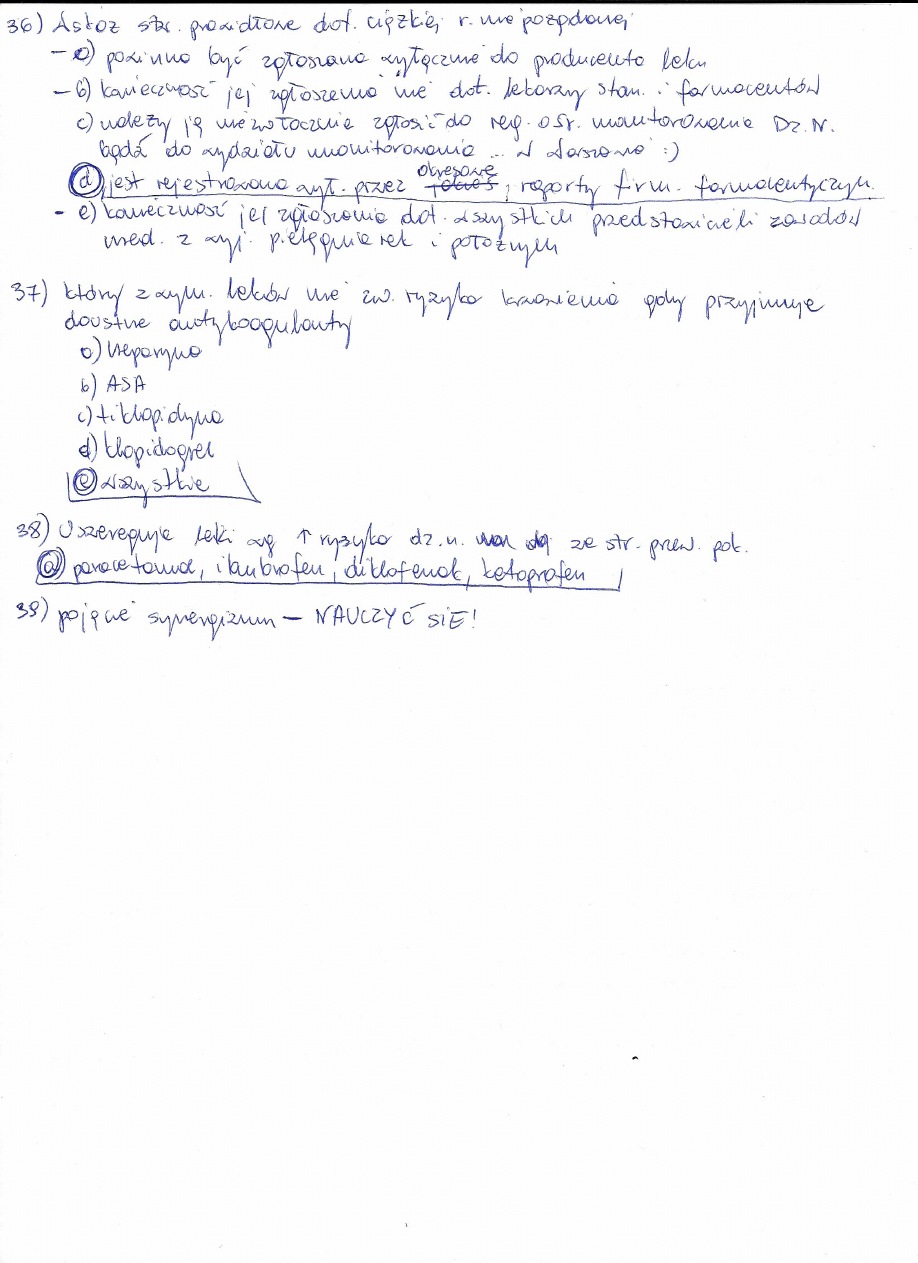 36) Wskaż stw. prawidłowe dot. ciężkiej r. niepożądanej
- a) powinna być zgłoszana wyłącznie do producenta leku
- b) konieczność jej zgłoszenia nie dot. lekarzy stom. i farmaceutów
c) należy ją niezwłocznie zgłosić do reg. ośr. monitorowania Dz. N.
bądź do wydziału monitorowania ... w Warszawie :)
d) jest rejestrowana wył. przez okresowe raporty firm. farmaceutycznych
- e) konieczność jej zgłoszenia dot. wszystkich przedstawicieli zawodów
med. z wyj. pielęgniarek i położnych
37) który z wym. leków nie zw. ryzyka krwawienia gdy przyjmuje
doustne antykoagulanty
a) heparyna
b) ASA
c) tiklopidyna
d) klopidogrel
e) wszystkie
38) Uszereguj leki wg ↑ ryzyka dz. n. ze str. przew. pok.
a) paracetamol, ibubrofen, diklofenak, ketoprofen
39) pojęcie synergizmu — NAUCZYĆ SIĘ!